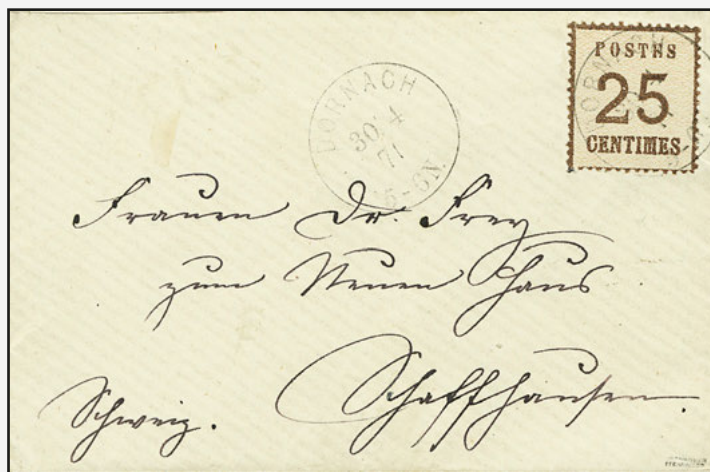 POSTES
25
CENTIMES
DORNACH
30 4
71
5-6N.
Frauen Dr. Frey
zum Neuen Haus
Schaffhausen.
Schweiz.